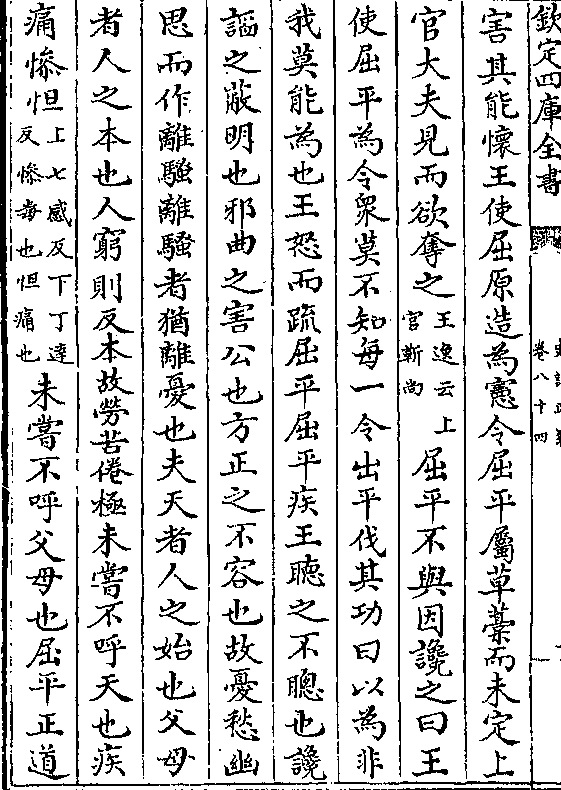 欽定四庫全書
卷八十四
害其能懷王使屈原造為憲令屈平屬草藁而未定上
官大夫見而欲奪之王逸云上官靳尚屈平不與因讒之曰王
使屈平為令衆莫不知每一令出平伐其功曰以為非
我莫能為也王怒而疏屈平屈平疾王聽之不聰也讒
謟之蔽明也邪曲之害公也方正之不容也故憂愁幽
思而作離騷離騷者猶離憂也夫天者人之始也父母
者人之本也人窮則反本故勞苦倦極未嘗不呼天也疾
痛慘怛上七感反下丁達反慘毒也怛痛也未嘗不呼父母也屈平正道